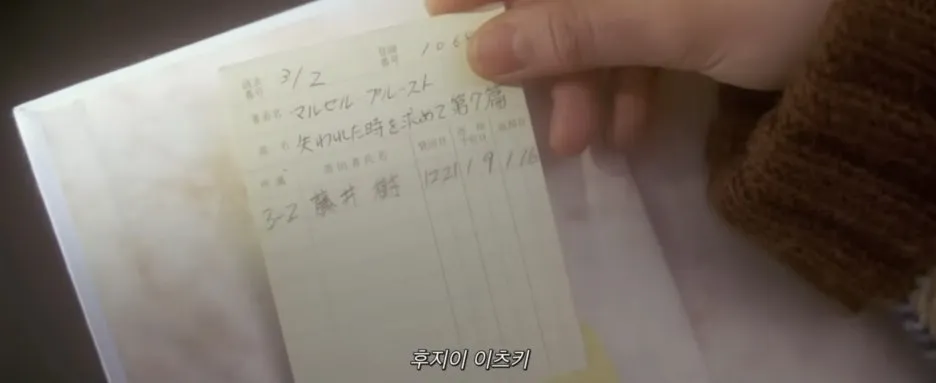 請求番号 312 登録番号
著者名 マルセル プルースト
書名 失われた時を求めて 第7篇
所属 帯出者氏名 貸出日
3-2 藤井 樹 12 21 1 9 1 16
후지이 이츠키